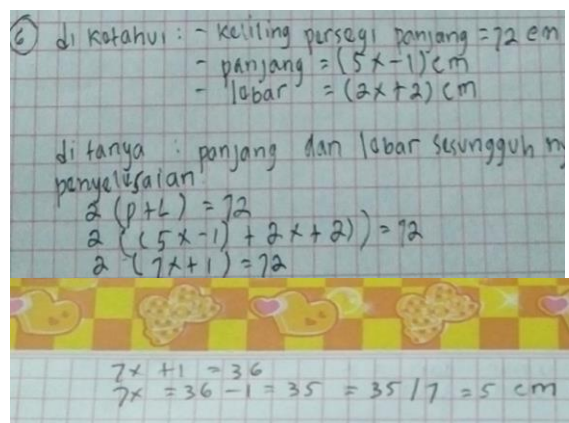 6 di ketahui : - keliling persegi panjang = 72 cm
- panjang = (5x-1) cm
- lebar = (2x+2) cm
di tanya : panjang dan lebar sesungguh ny
penyelesaian
2 (P+L) = 72
2 ((5x-1) + 2x+2)) = 72
2 (7x+1) = 72
7x +1 = 36
7x = 36 - 1 = 35 = 35/7 = 5 cm